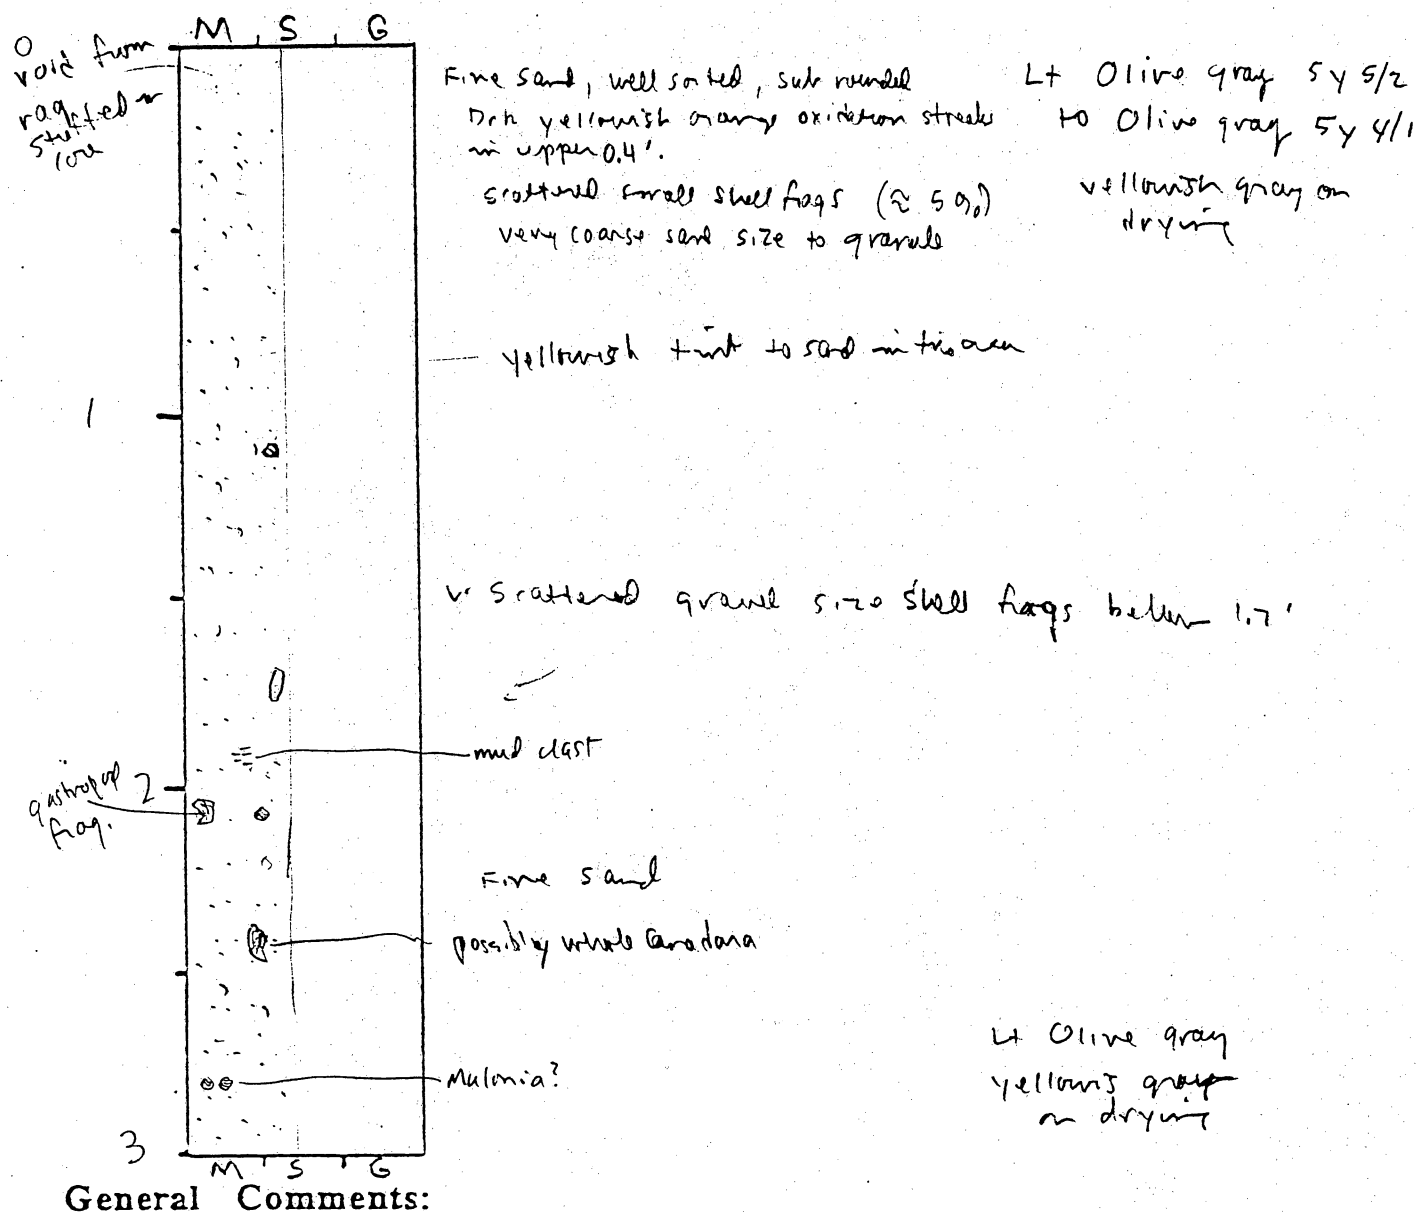 M , S , G
0
void from
rag
stuffed in
core
Fine sand, well sorted, sub rounded
Drk yellowish orange oxidation streaks
in upper 0.4'.
scattered small shell frags (≈ 5%)
very coarse sand size to granule
Lt Olive gray 5y 5/2
to Olive gray 5y 4/1
yellowish gray on
drying
yellowish tint to sand in this area
1
v. scattered gravel size shell frags below 1.7'
mud clast
2
gastropod
frag.
Fine sand
possibly whole
Lt Olive gray
yellowis gray
on drying
Mulonia?
3
M , S , G
General Comments: